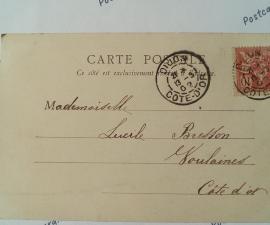 Postc
CARTE POSTALE
Ce côté est exclusivement
DIJON
CÔTE-D'OR
Mademoiselle
Lucile Bresson
Voulaines
Côte d'or